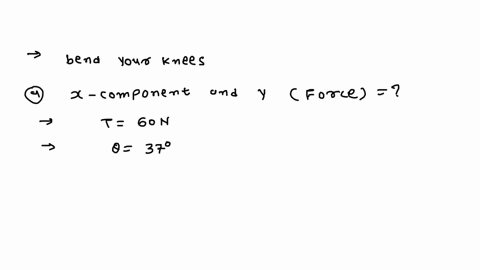 → bend your knees
④ x-component and y (Force) = ?
→ T = 60N
→ θ = 37°